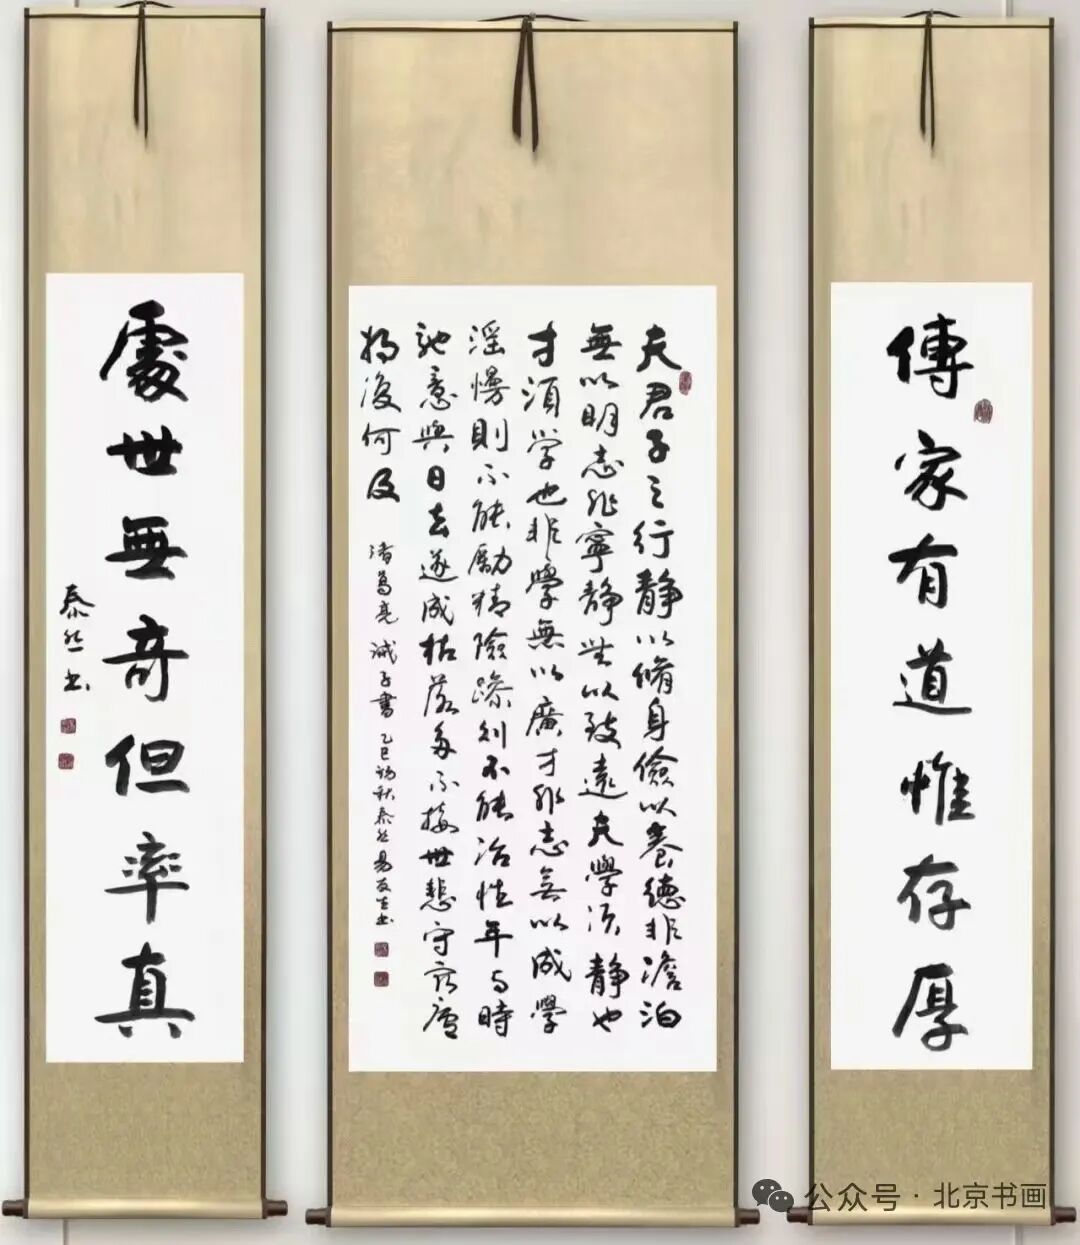 傳家有道惟存厚
夫君子之行静以脩身儉以養德非澹泊
無以明志非寧静無以致遠夫學須静也
才須學也非學無以廣才非志無以成學
滛慢則不能勵精險躁则不能治性年与時
馳意與日去遂成枯落多不接世悲守窮廬
將復何及
諸葛亮誡子書 乙巳秋泰然易友生书
處世無奇但率真
泰然书
公众号·北京书画